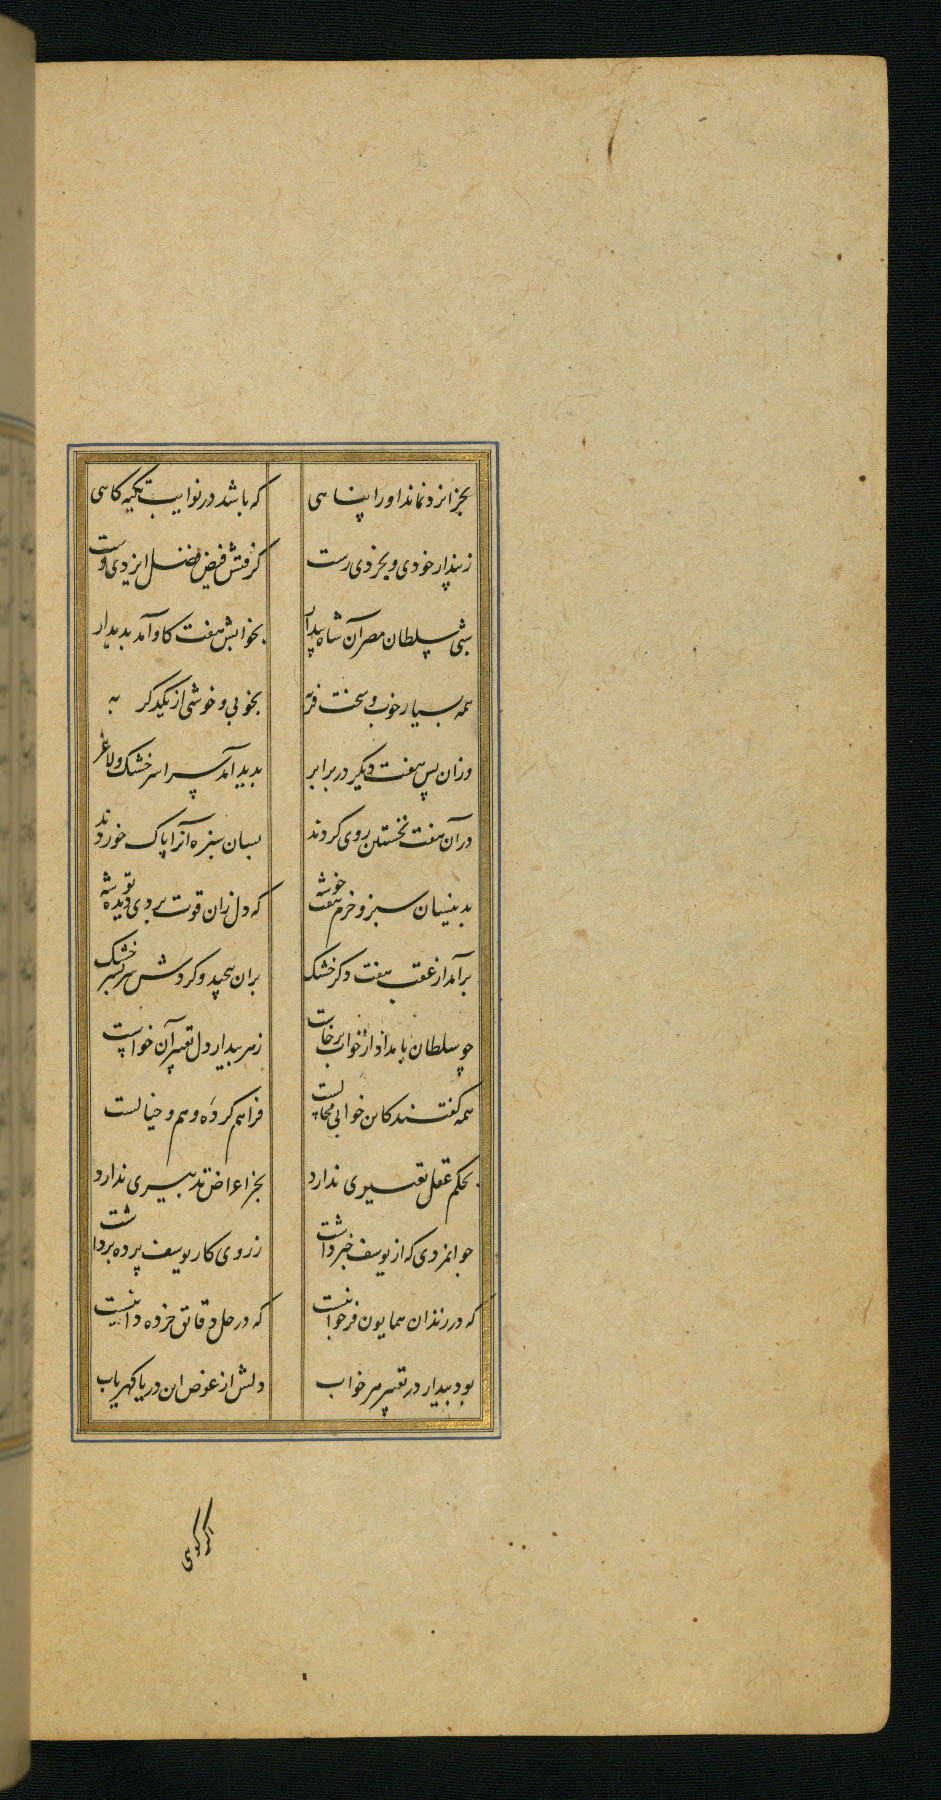 بجز ایزد نماند او را پناهی که باشد در نوایب تکیه گاهی
ز پندار خودی و بخردی رست گرفتش فیض فضل ایزدی دست
شبی سلطان مصر آن شاه بیدار بخوابش هفت گاو آمد پدیدار
همه بسیار خوب و سخت فربه بخوبی و خوشی از یکدگر به
وزان پس هفت دیگر در برابر پدید آمد سراسر خشک و لاغر
در آن هفت نخستین روی کردند بسان سبزه آنرا پاک خوردند
بدینسان سبز و خرم هفت خوشه که دل زان قوت بردی دیده توشه
برآمد از عقب هفت دگر خشک بران پیچید و کردش سر بسر خشک
چو سلطان بامداد از خواب برخاست ز هر بیدار دل تعبیر آن خواست
همه گفتند کاین خوابی محالست فراهم کرده وهم و خیالست
بحکم عقل تعبیری ندارد بجز اعراض تدبیری ندارد
جوانمردی که از یوسف خبر داشت ز روی کار یوسف پرده برداشت
که در زندان همایون فر جوانیست که در حل دقائق خرده دانیست
بود بیدار در تعبیر هر خواب دلش از غوص این دریا گهریاب
اگر گویی